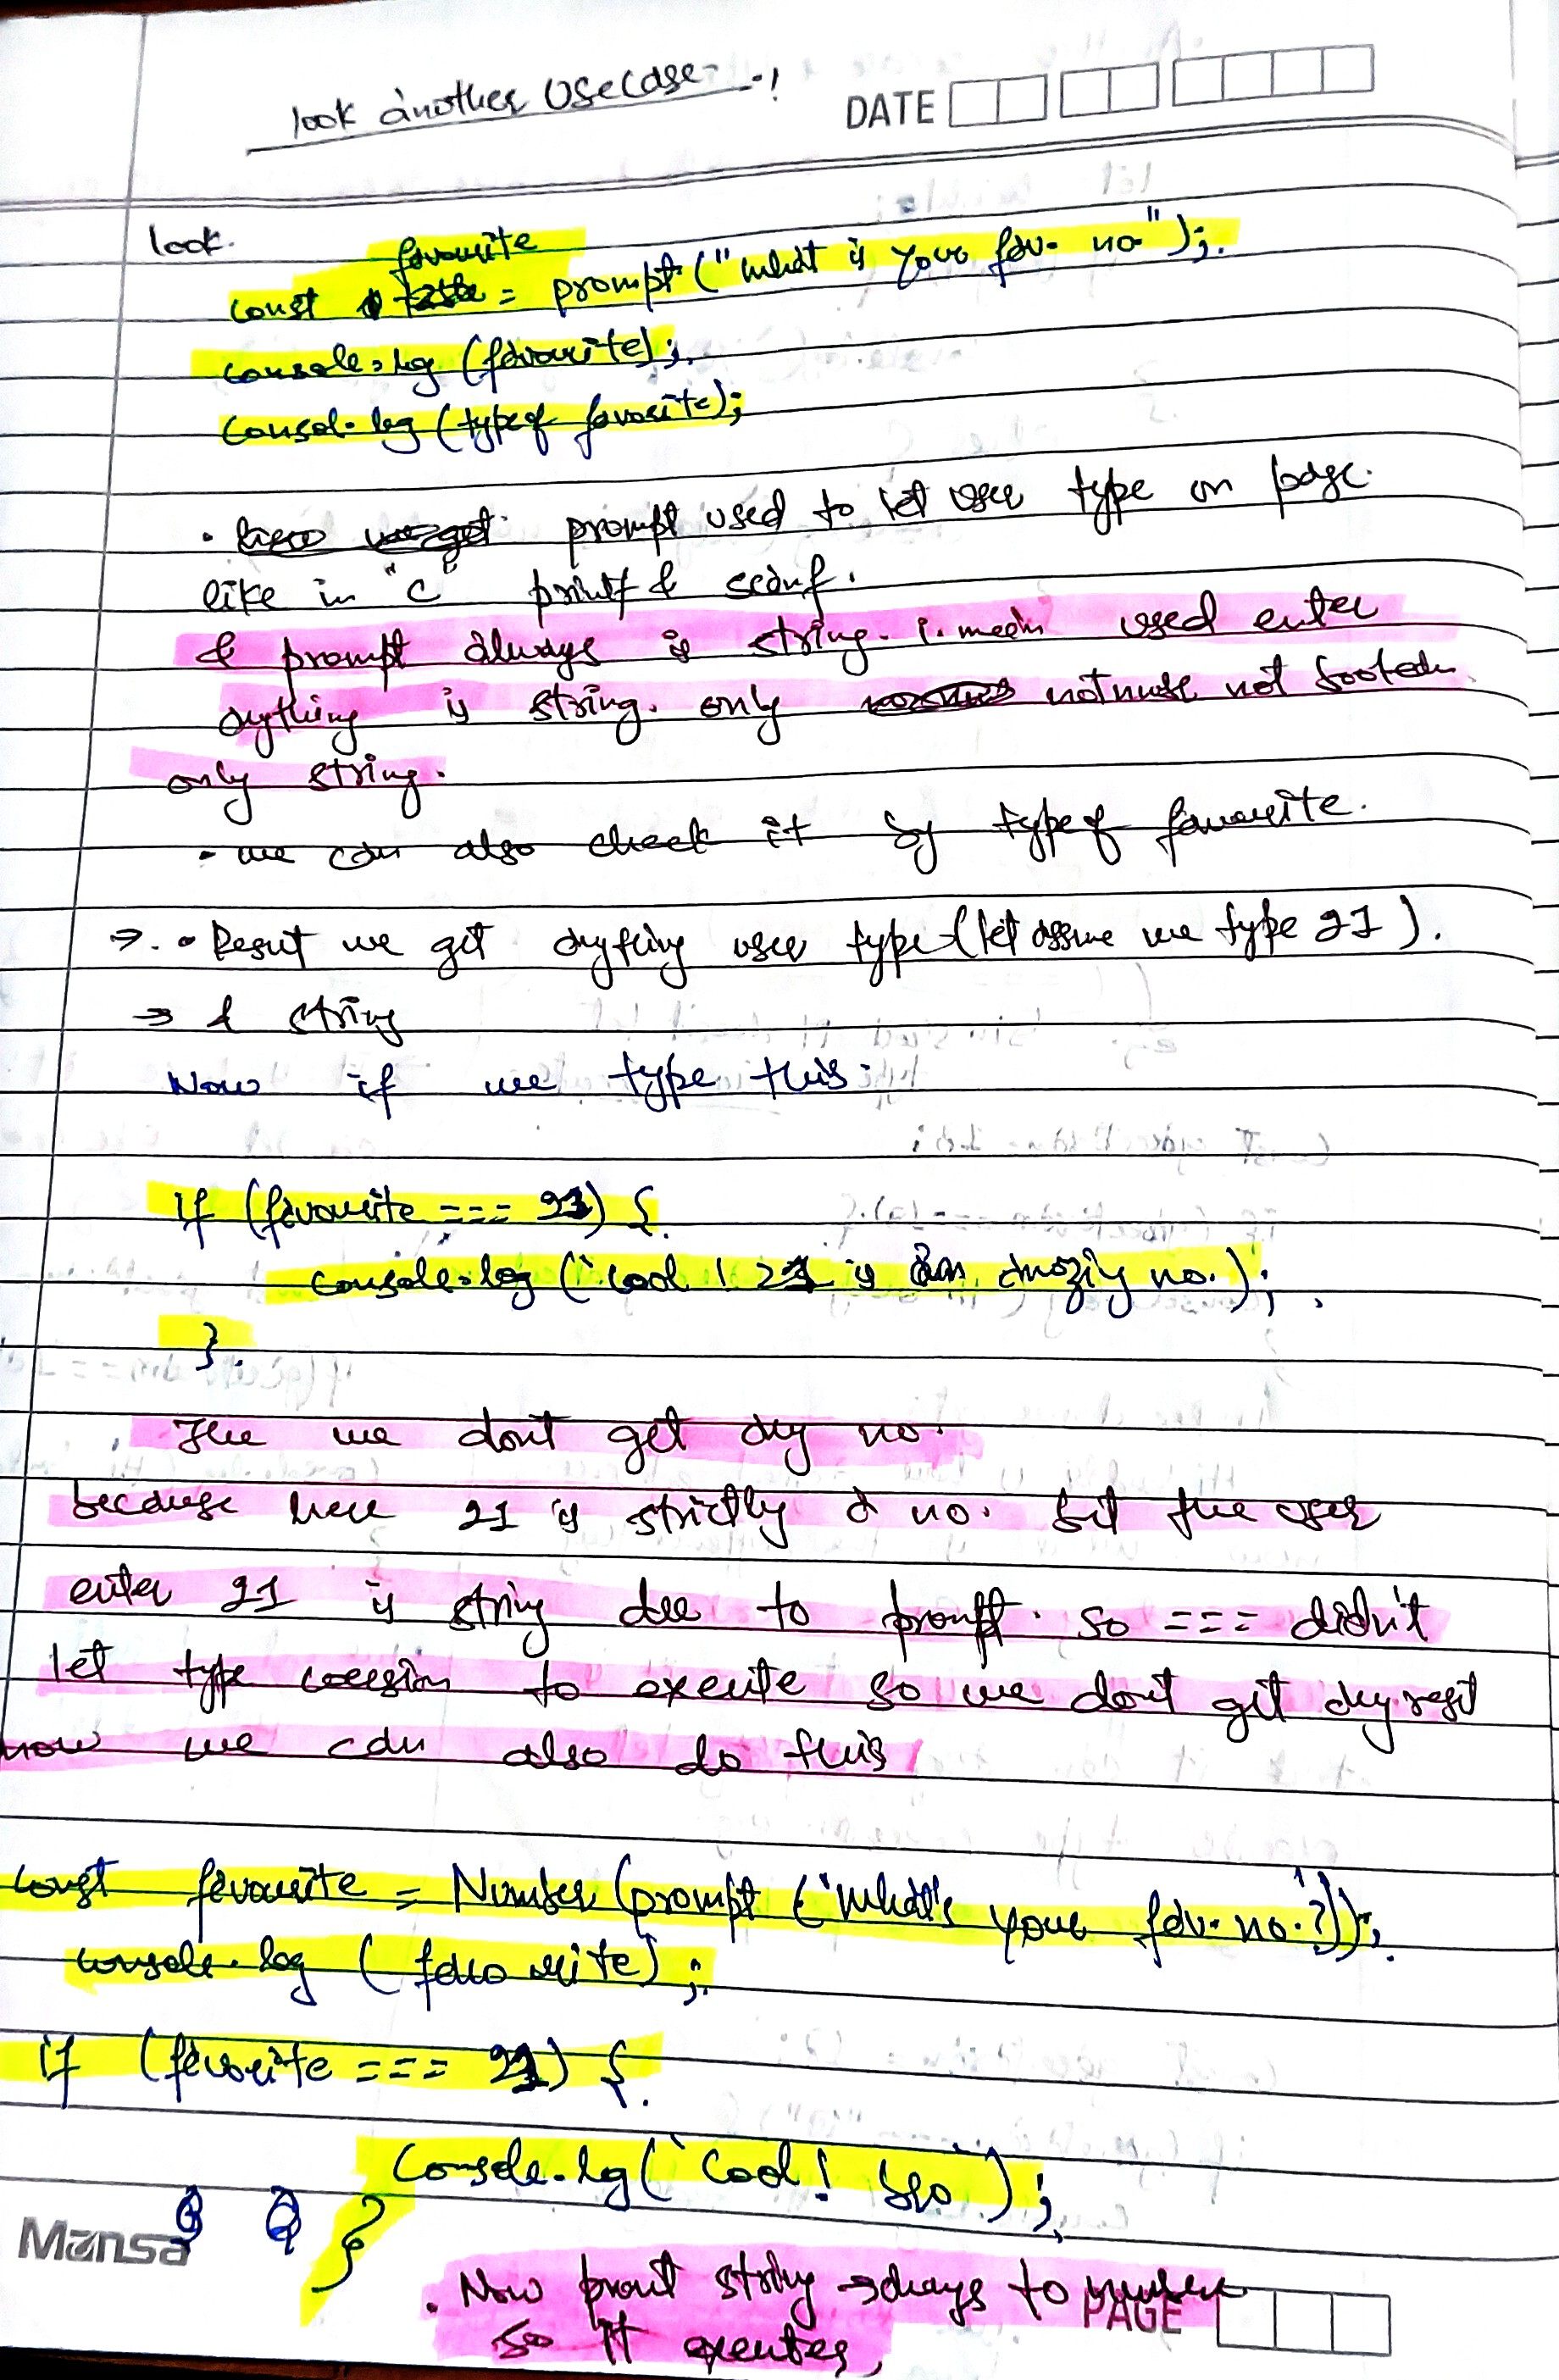 look another Usecase -!
DATE
look.
favourite
const = prompt ("what is your fav. no");
console.log (favourite);
consol.log (typeof favorite);
. prompt used to let user type on page.
like in "c" printf & scanf.
& prompt always is string. i mean used enter
anything is string. only not not boolean
only string.
. we can also check it by typeof favourite.
→ . Result we get anything user type (let assume we type 21).
→ & string
Now if we type this:
if (favourite === 21) {
console.log (`cool ! 21 is an amazing no.);
}.
we dont get any no.
because here 21 is strictly a no. but the user
enter 21 is string due to prompt. so === didn't
let type coersion to execute so we dont get any result
now we can also do this
const favourite = Number (prompt ('What's your fav. no.?'));
console.log (favourite);
if (favorite === 21) {
Console.log(`Cool! );
}
Mansa
. Now string → to number
PAGE
so it executes,